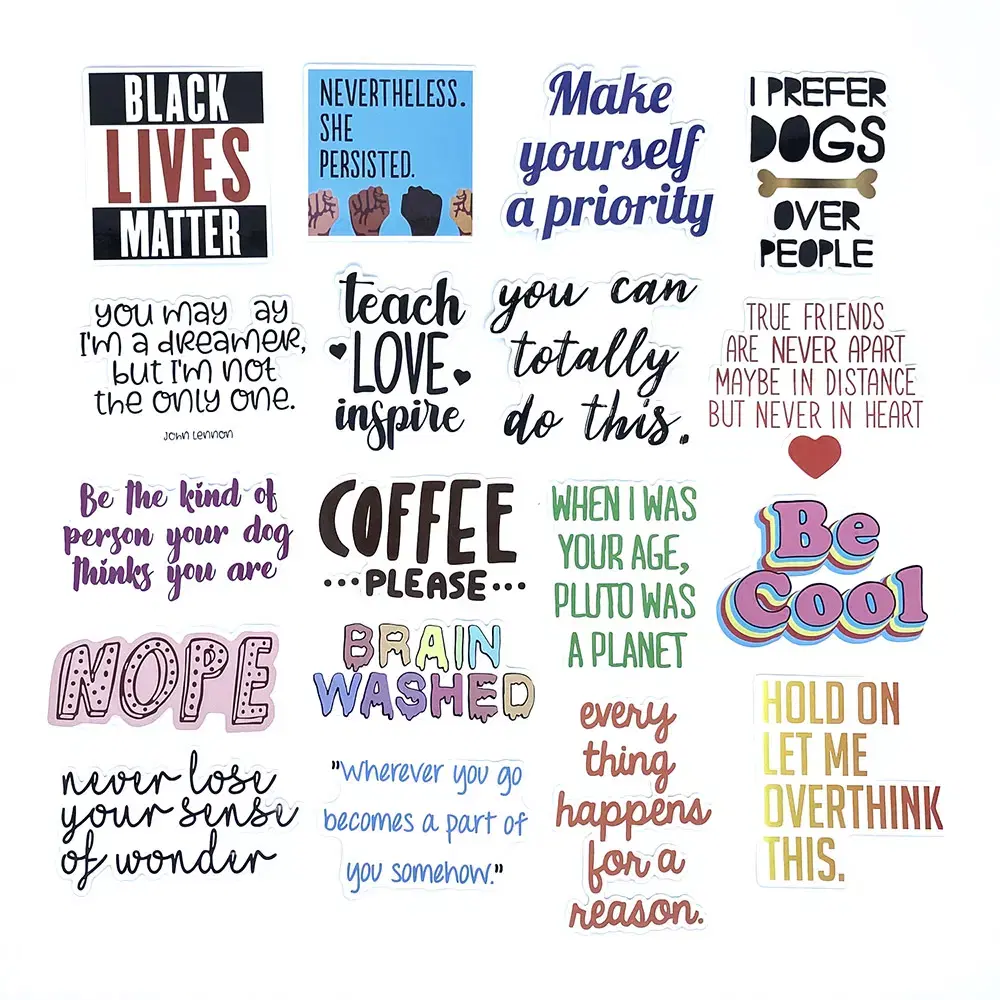 BLACK
LIVES
MATTER
NEVERTHELESS.
SHE
PERSISTED.
Make
yourself
a priority
I PREFER
DOGS
OVER
PEOPLE
you may ay
I'm a dreamer,
but I'm not
the only one.
John Lennon
teach
LOVE
inspire
you can
totally
do this.
TRUE FRIENDS
ARE NEVER APART
MAYBE IN DISTANCE
BUT NEVER IN HEART
Be the kind of
person your dog
thinks you are
COFFEE
...PLEASE...
WHEN I WAS
YOUR AGE,
PLUTO WAS
A PLANET
Be
Cool
NOPE
BRAIN
WASHED
every
thing
happens
for a
reason.
HOLD ON
LET ME
OVERTHINK
THIS.
never lose
your sense
of wonder
"Wherever you go
becomes a part of
you somehow."